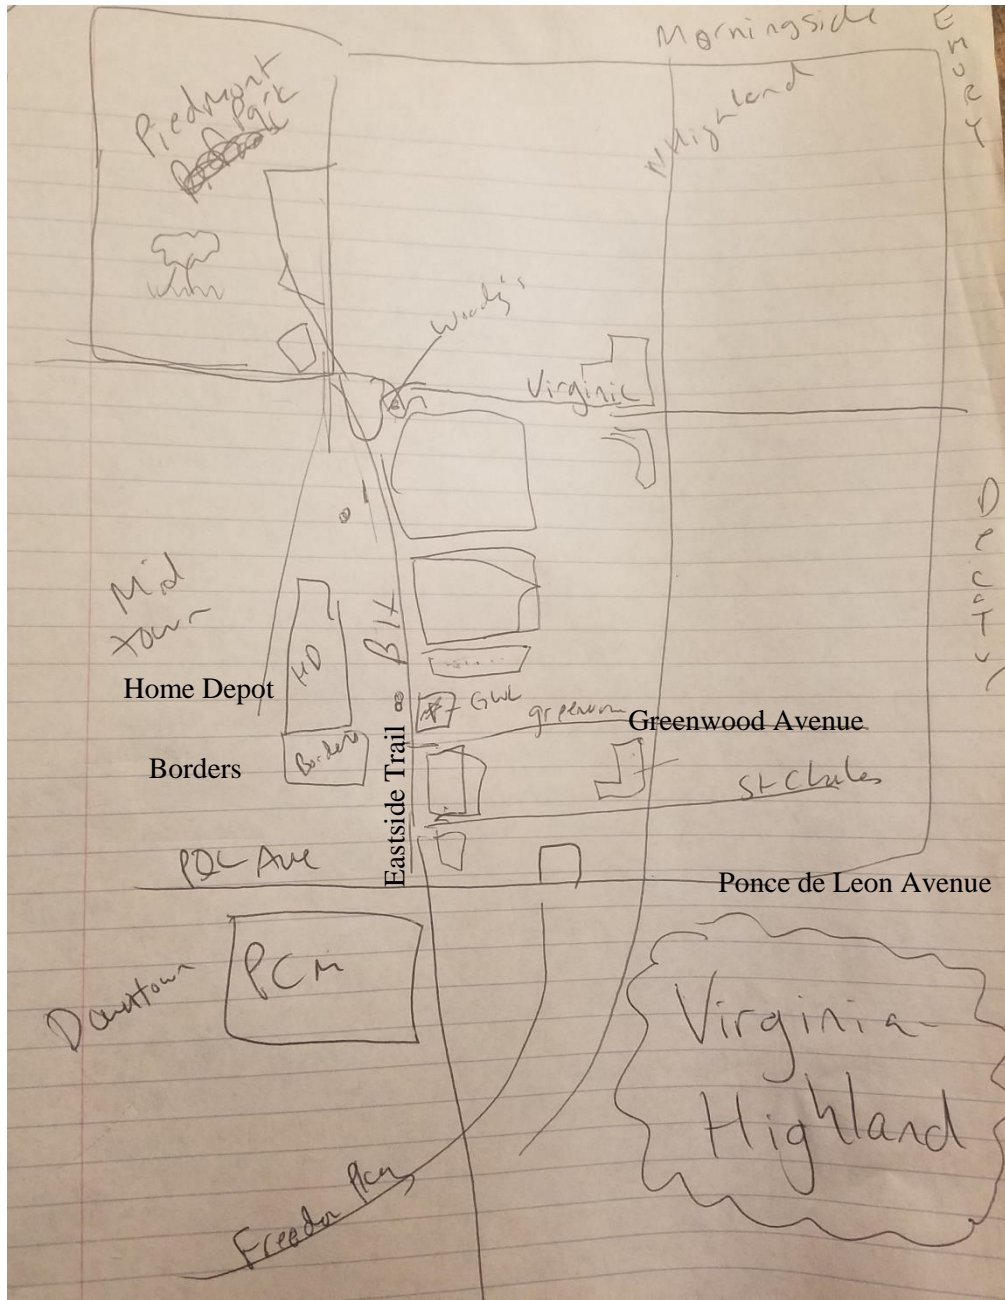 Morningside
EMORY
Piedmont
Park
N Highland
Woody's
Virginia
Decatur
Mid
town
HD
Blt
Home Depot
GWL
Greenwood Avenue
Borders
Borders
Eastside Trail
St Charles
PDL Ave
Ponce de Leon Avenue
PCM
Downtown
Virginia-
Highland
Freedom